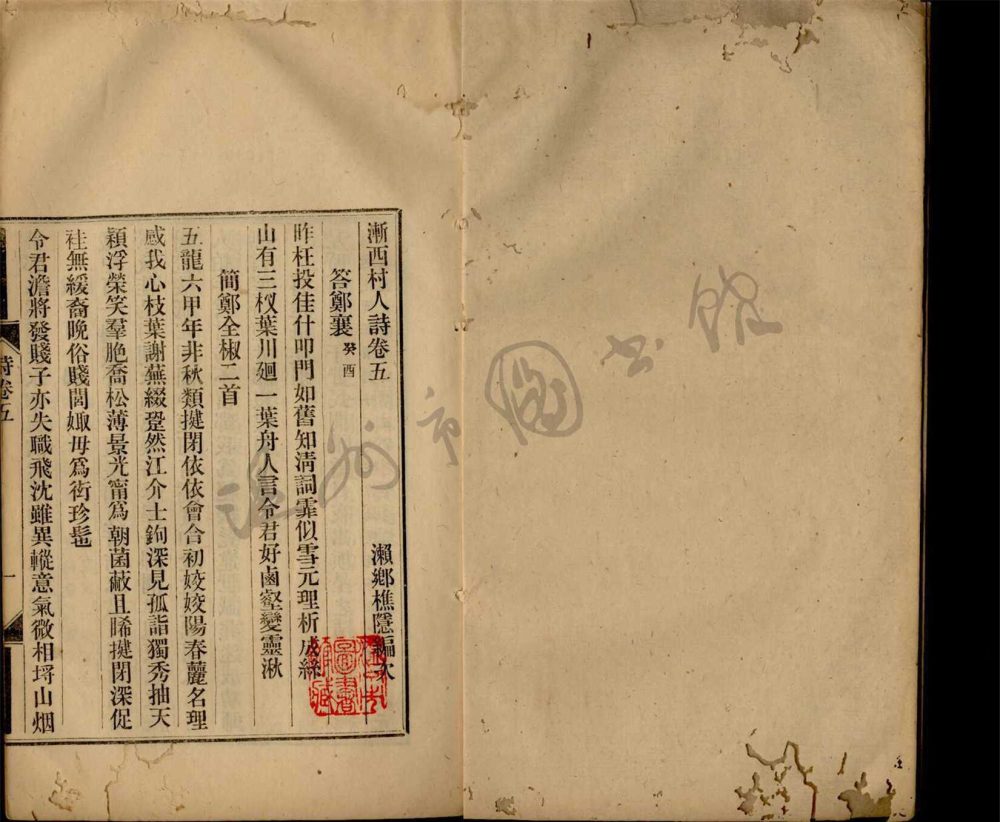 漸西村人詩卷五
瀨鄉樵隱編次
答鄭襄癸酉
昨枉投佳什叩門如舊知清詞霏似雪元理析成絲
山有三杈葉川廻一葉舟人言令君好鹵壑變靈湫
簡鄭全椒二首
五龍六甲年非秋類揵閉依依會合初姣姣陽春麗名理
感我心枝葉謝蕪綴跫然江介士鉤深見孤詣獨秀抽天
穎浮榮笑羣脃喬松薄景光甯為朝菌蔽且睎揵閉深促
袿無緩裔晩俗賤閭娵毋爲衒珍髢
令君澹將發賤子亦失職飛沈雖異轍意氣微相埒山烟
詩卷五
一